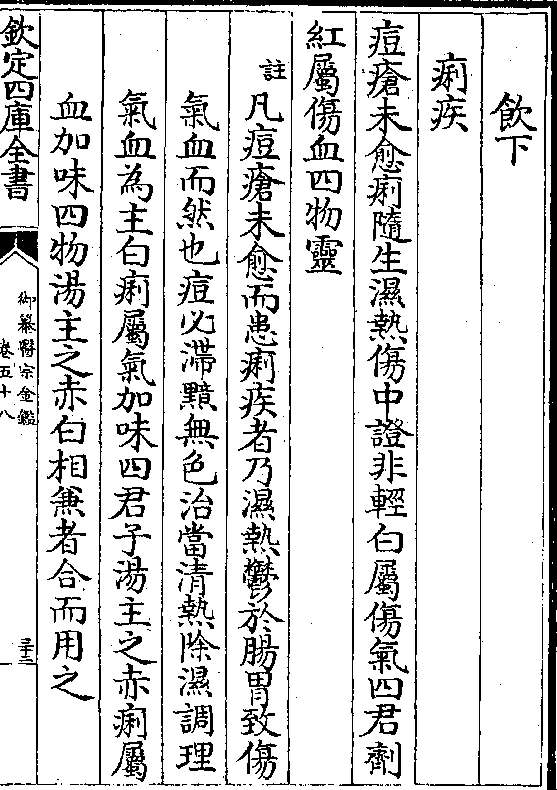 飲下
痢疾
痘瘡未愈痢隨生濕熱傷中證非輕白屬傷氣四君劑
紅屬傷血四物靈
註凡痘瘡未愈而患痢疾者乃濕熱鬱於腸胃致傷
氣血而然也痘必滯黯無色治當清熱除濕調理
氣血為主白痢屬氣加味四君子湯主之赤痢屬
血加味四物湯主之赤白相兼者合而用之
欽定四庫全書
御纂醫宗金鑑
卷五十八
三十二